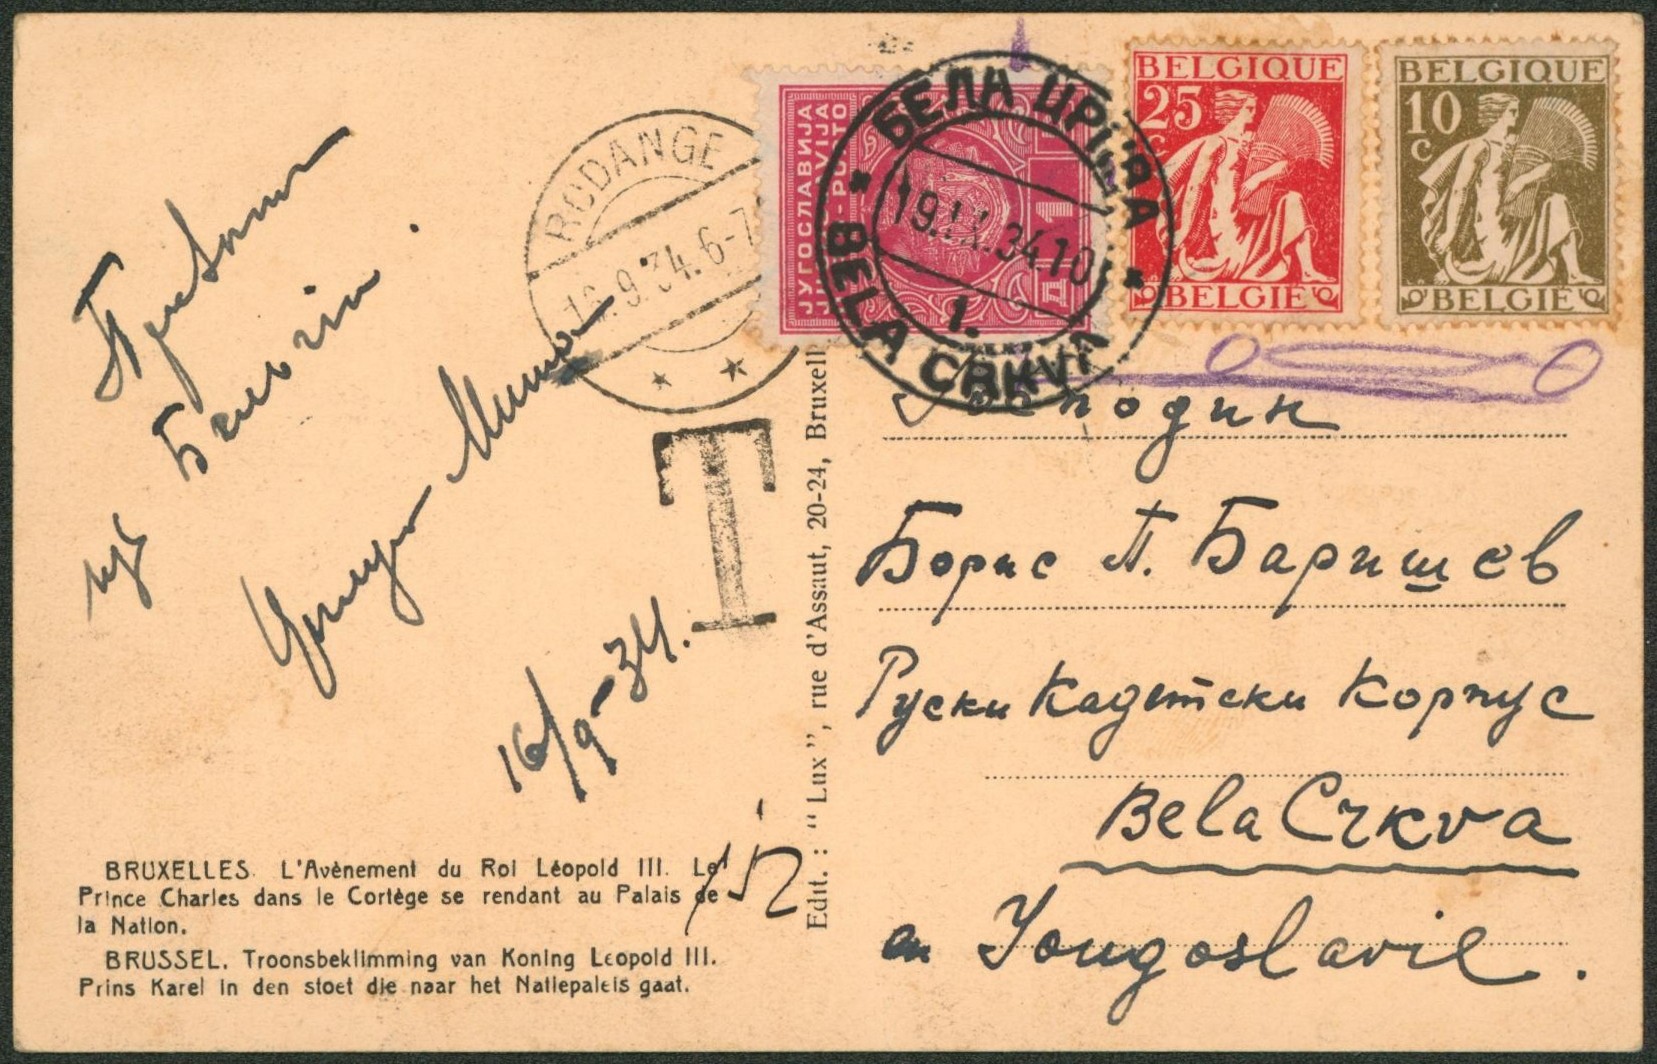 Привѣтъ
изъ Бельгіи.
16/9-34.
BRUXELLES. L'Avènement du Roi Léopold III. Le
Prince Charles dans le Cortège se rendant au Palais de
la Nation.
BRUSSEL. Troonsbeklimming van Koning Leopold III.
Prins Karel in den stoet die naar het Natiepaleis gaat.
RODANGE
9.34.6-7
T
Edit. : “Lux”, rue d'Assaut, 20-24, Bruxell
ЈУГОСЛАВИЈА
ПОРТО - PORTO
БЕЛА ЦРКВА
19.IX.34.10
1.
BELA CRKVA
BELGIQUE
25
c
BELGIË
BELGIQUE
10
c
BELGIË
Господин
Борис П. Баришев
Руски Кадетски Корпус
Bela Crkva
en Yougoslavie.